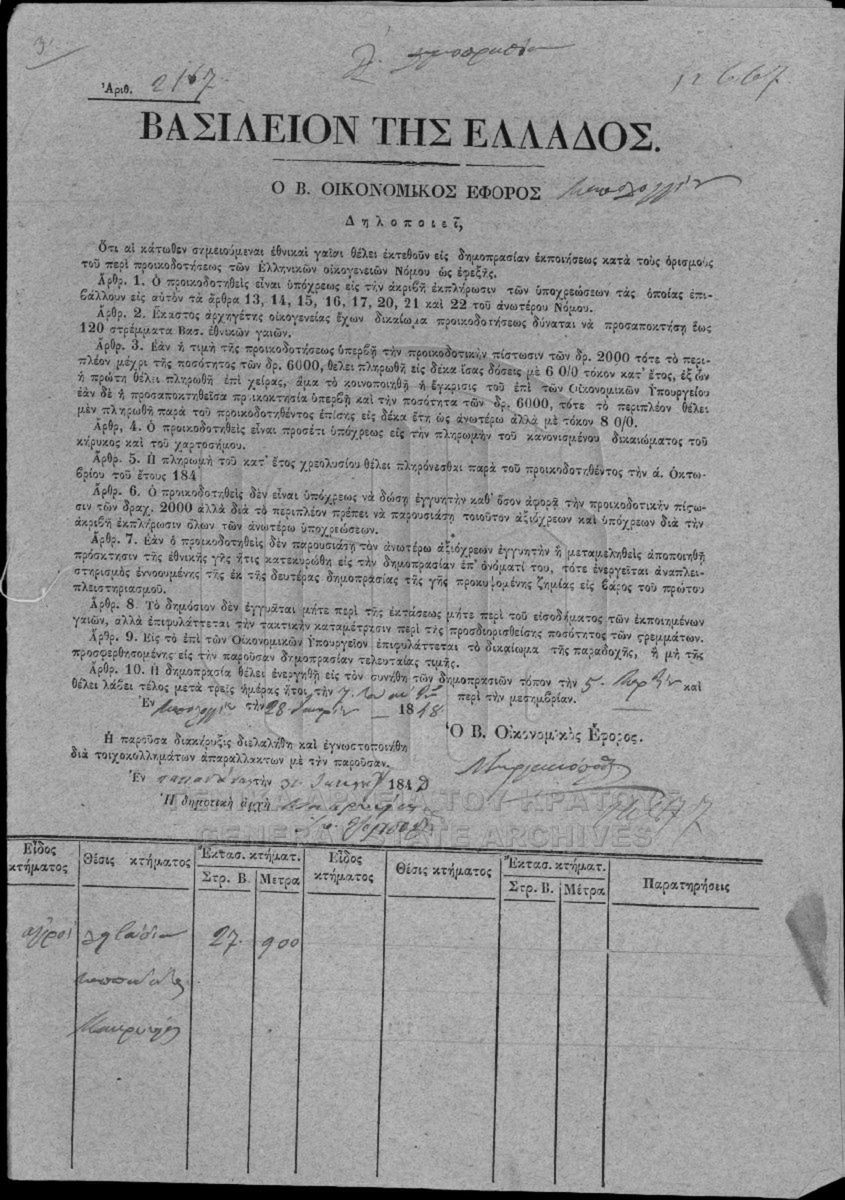 Ἀριθ. 2167. 12667
ΒΑΣΙΛΕΙΟΝ ΤΗΣ ΕΛΛΑΔΟΣ.
Ο Β. ΟΙΚΟΝΟΜΙΚΟΣ ΕΦΟΡΟΣ
Δηλοποιεῖ,
Ὅτι αἱ κάτωθεν σημειούμεναι ἐθνικαὶ γαῖαι θέλει ἐκτεθοῦν εἰς δημοπρασίαν ἐκποιήσεως κατὰ τοὺς ὁρισμοὺς
τοῦ περὶ προικοδοτήσεως τῶν Ἑλληνικῶν οἰκογενειῶν Νόμου ὡς ἐφεξῆς.
Ἄρθρ. 1. Ὁ προικοδοτηθεὶς εἶναι ὑπόχρεως εἰς τὴν ἀκριβῆ ἐκπλήρωσιν τῶν ὑποχρεώσεων τὰς ὁποίας ἐπι-
βάλλουν εἰς αὐτὸν τὰ ἄρθρα 13, 14, 15, 16, 17, 20, 21 καὶ 22 τοῦ ἀνωτέρω Νόμου.
Ἄρθρ. 2. Ἕκαστος ἀρχηγέτης οἰκογενείας ἔχων δικαίωμα προικοδοτήσεως δύναται νὰ προσαποκτήσῃ ἕως
120 στρέμματα Βασ. ἐθνικῶν γαιῶν.
Ἄρθρ. 3. Ἐὰν ἡ τιμὴ τῆς προικοδοτήσεως ὑπερβῇ τὴν προικοδοτικὴν πίστωσιν τῶν δρ. 2000 τότε τὸ περι-
πλέον μέχρι τῆς ποσότητος τῶν δρ. 6000, θέλει πληρωθῆ εἰς δέκα ἴσας δόσεις μὲ 6 0/0 τόκον κατ᾽ ἔτος, ἐξ ὧν
ἡ πρώτη θέλει πληρωθῆ ἐπὶ χείρας, ἅμα τὸ κοινοποιηθῆ ἡ ἔγκρισις τοῦ ἐπὶ τῶν Οἰκονομικῶν Ὑπουργείου
ἐὰν δὲ ἡ προσαποκτηθεῖσα πρικοκτησία ὑπερβῇ καὶ τὴν ποσότητα τῶν δρ. 6000, τότε τὸ περιπλέον θέλει
μὲν πληρωθῆ παρὰ τοῦ προικοδοτηθέντος ἐπίσης εἰς δέκα ἔτη ὡς ἀνωτέρω ἀλλὰ μὲ τόκον 8 0/0.
Ἄρθρ, 4. Ὁ προικοδοτηθεὶς εἶναι προσέτι ὑπόχρεως εἰς τὴν πληρωμὴν τοῦ κανονισμένου δικαιώματος τοῦ
κήρυκος καὶ τοῦ χαρτοσήμου.
Ἄρθρ. 5. Ἡ πληρωμὴ τοῦ κατ᾽ ἔτος χρεολυσίου θέλει πληρόνεσθαι παρὰ τοῦ προικοδοτηθέντος τὴν ά. Ὀκτω-
βρίου τοῦ ἔτους 184
Ἄρθρ. 6. Ὁ προικοδοτηθεὶς δὲν εἶναι ὑπόχρεως νὰ δώσῃ ἐγγυητὴν καθ᾽ ὅσον ἀφορᾷ τὴν προικοδοτικὴν πίστω-
σιν τῶν δραχ. 2000 ἀλλὰ διὰ τὸ περιπλέον πρέπει νὰ παρουσιάσῃ τοιοῦτον ἀξιόχρεων καὶ ὑπόχρεων διὰ τὴν
ἀκριβῆ ἐκπλήρωσιν ὅλων τῶν ἀνωτέρω ὑποχρεώσεων.
Ἄρθρ. 7. Ἐὰν ὁ προικοδοτηθεὶς δὲν παρουσιάσῃ τὸν ἀνωτέρω ἀξιόχρεων ἐγγυητὴν ἢ μεταμεληθεὶς ἀποποιηθῇ
πρόσκτησιν τῆς ἐθνικῆς γῆς ἥτις κατεκυρώθη εἰς τὴν δημοπρασίαν ἐπ᾽ ὀνόματί του, τότε ἐνεργεῖται ἀναπλει-
στηριασμὸς ἐννοουμένης τῆς ἐκ τῆς δευτέρας δημοπρασίας τῆς γῆς προκυψομένης ζημίας εἰς βάρος τοῦ πρώτου
πλειστηριασμοῦ.
Ἄρθρ. 8. Τὸ δημόσιον δὲν ἐγγυᾶται μήτε περὶ τῆς ἐκτάσεως μήτε περὶ τοῦ εἰσοδήματος τῶν ἐκποιημένων
γαιῶν, ἀλλὰ ἐπιφυλάττεται τὴν τακτικὴν καταμέτρησιν περὶ τῆς προσδιορισθείσης ποσότητος τῶν στρεμμάτων.
Ἄρθρ. 9. Εἰς τὸ ἐπὶ τῶν Οἰκονομικῶν Ὑπουργεῖον ἐπιφυλάττεται τὸ δικαίωμα τῆς παραδοχῆς, ἢ μὴ τῆς
προσφερθησομένης εἰς τὴν παροῦσαν δημοπρασίαν τελευταίας τιμῆς.
Ἄρθρ. 10. Ἡ δημοπρασία θέλει ἐνεργηθῆ εἰς τὸν συνήθη τῶν δημοπρασιῶν τόπον τὴν 5 καὶ
θέλει λάβει τέλος μετὰ τρεῖς ἡμέρας ἤτοι τὴν 7 περὶ τὴν μεσημβρίαν.
Ἐν τὴν 28 1848
Ὁ Β. Οἰκονομικὸς Ἔφορος.
Ἡ παροῦσα διακήρυξις διελαλήθη καὶ ἐγνωστοποιήθη
διὰ τοιχοκολλημάτων ἀπαραλλάκτων μὲ τὴν παροῦσαν.
Ἐν τὴν 31 184
Ἡ δημοτικὴ ἀρχὴ
ΓΕΝΙΚΑ ΑΡΧΕΙΑ ΤΟΥ ΚΡΑΤΟΥΣ
GENERAL STATE ARCHIVES
Εἶδος κτήματος Θέσις κτήματος Ἔκτασ. κτήματ. Εἶδος κτήματος Θέσις κτήματος Ἔκτασ. κτήματ. Παρατηρήσεις
Στρ. Β. Μετρα Στρ. Β. Μέτρα
ἀγροὶ 27. 900